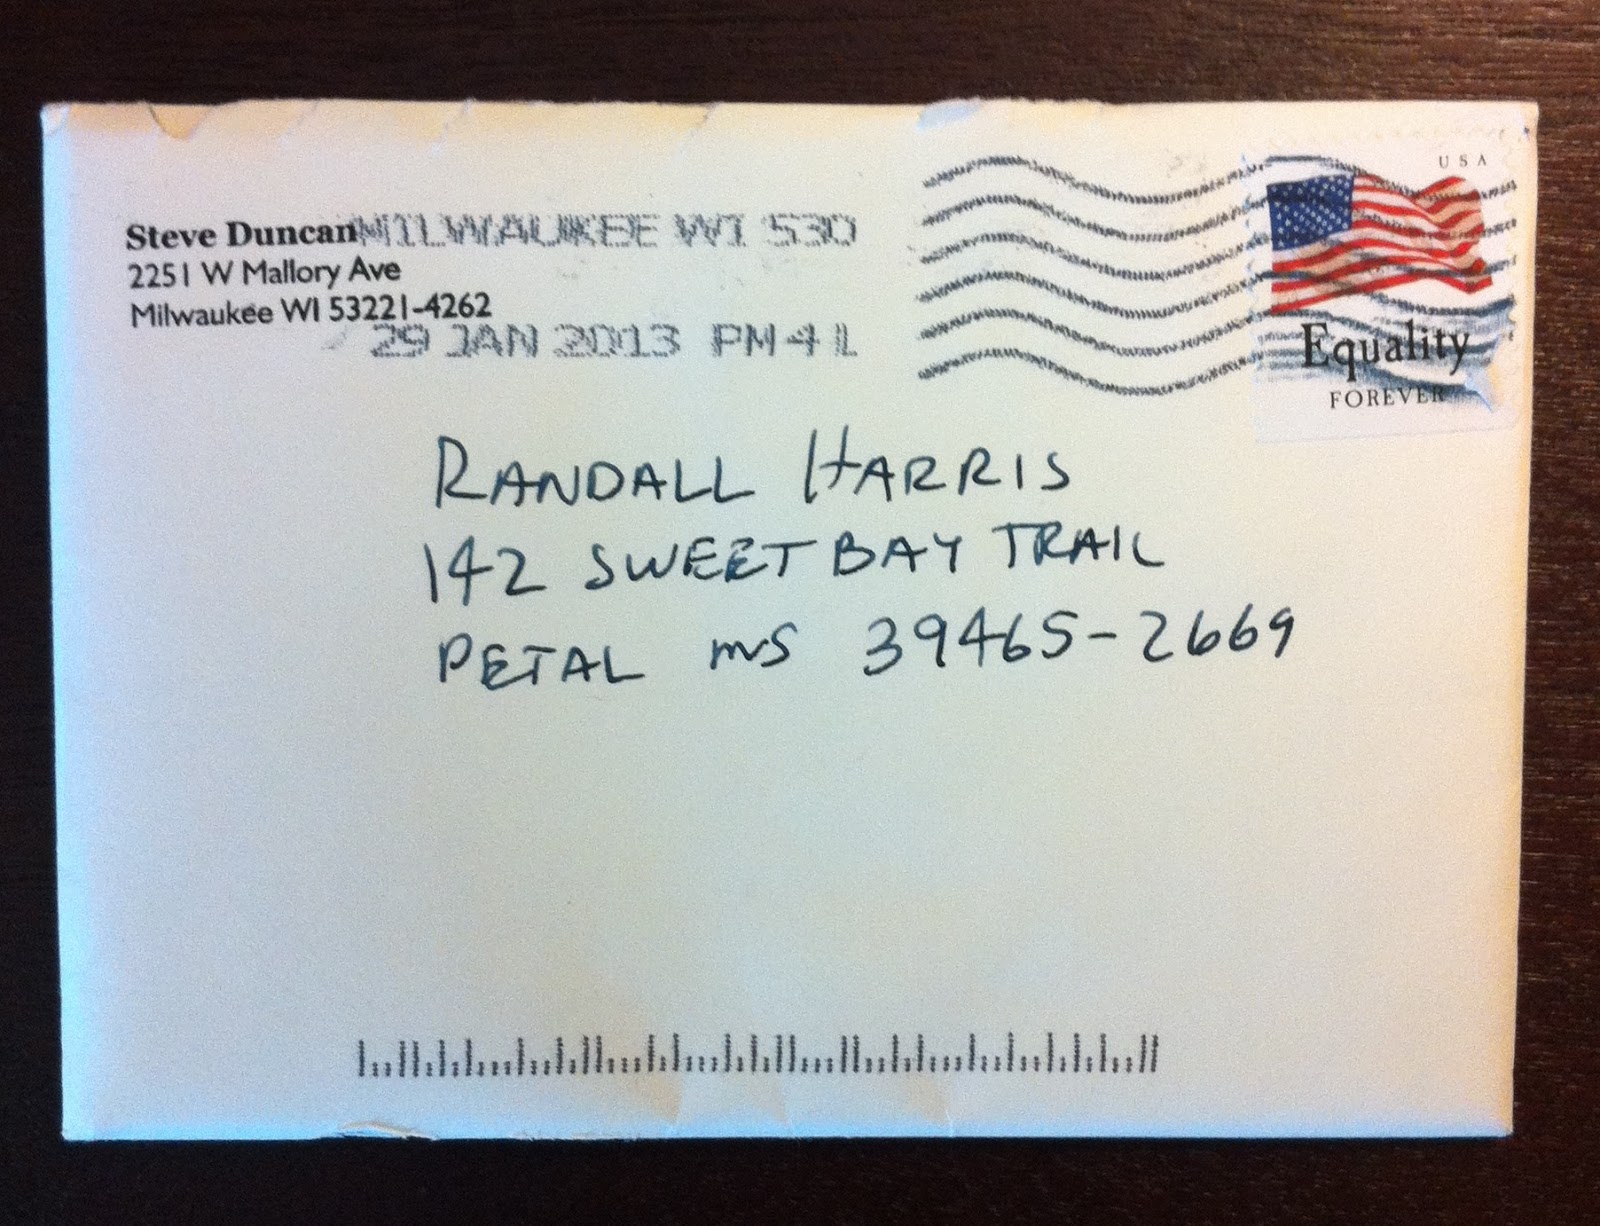 Steve Duncan
2251 W Mallory Ave
Milwaukee WI 53221-4262
MILWAUKEE WI 530
29 JAN 2013 PM 4 L
USA
Equality
FOREVER
RANDALL HARRIS
142 SWEET BAY TRAIL
PETAL MS 39465-2669